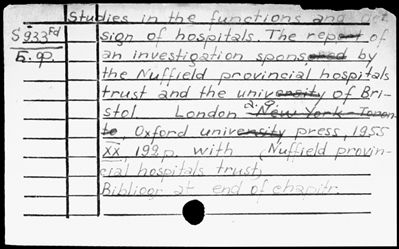 Studies in the functions and de-
S933Fd sign of hospitals. The report of
E.φ. an investigation sponsored by
the Nuffield provincial hospitals
trust and the university of Bri-
stol. London a.o. New York Toron-
to, Oxford university press, 1955
XX, 192 p. with (Nuffield provin-
cial hospitals trust)
Bibliogr. at end of chapitr.